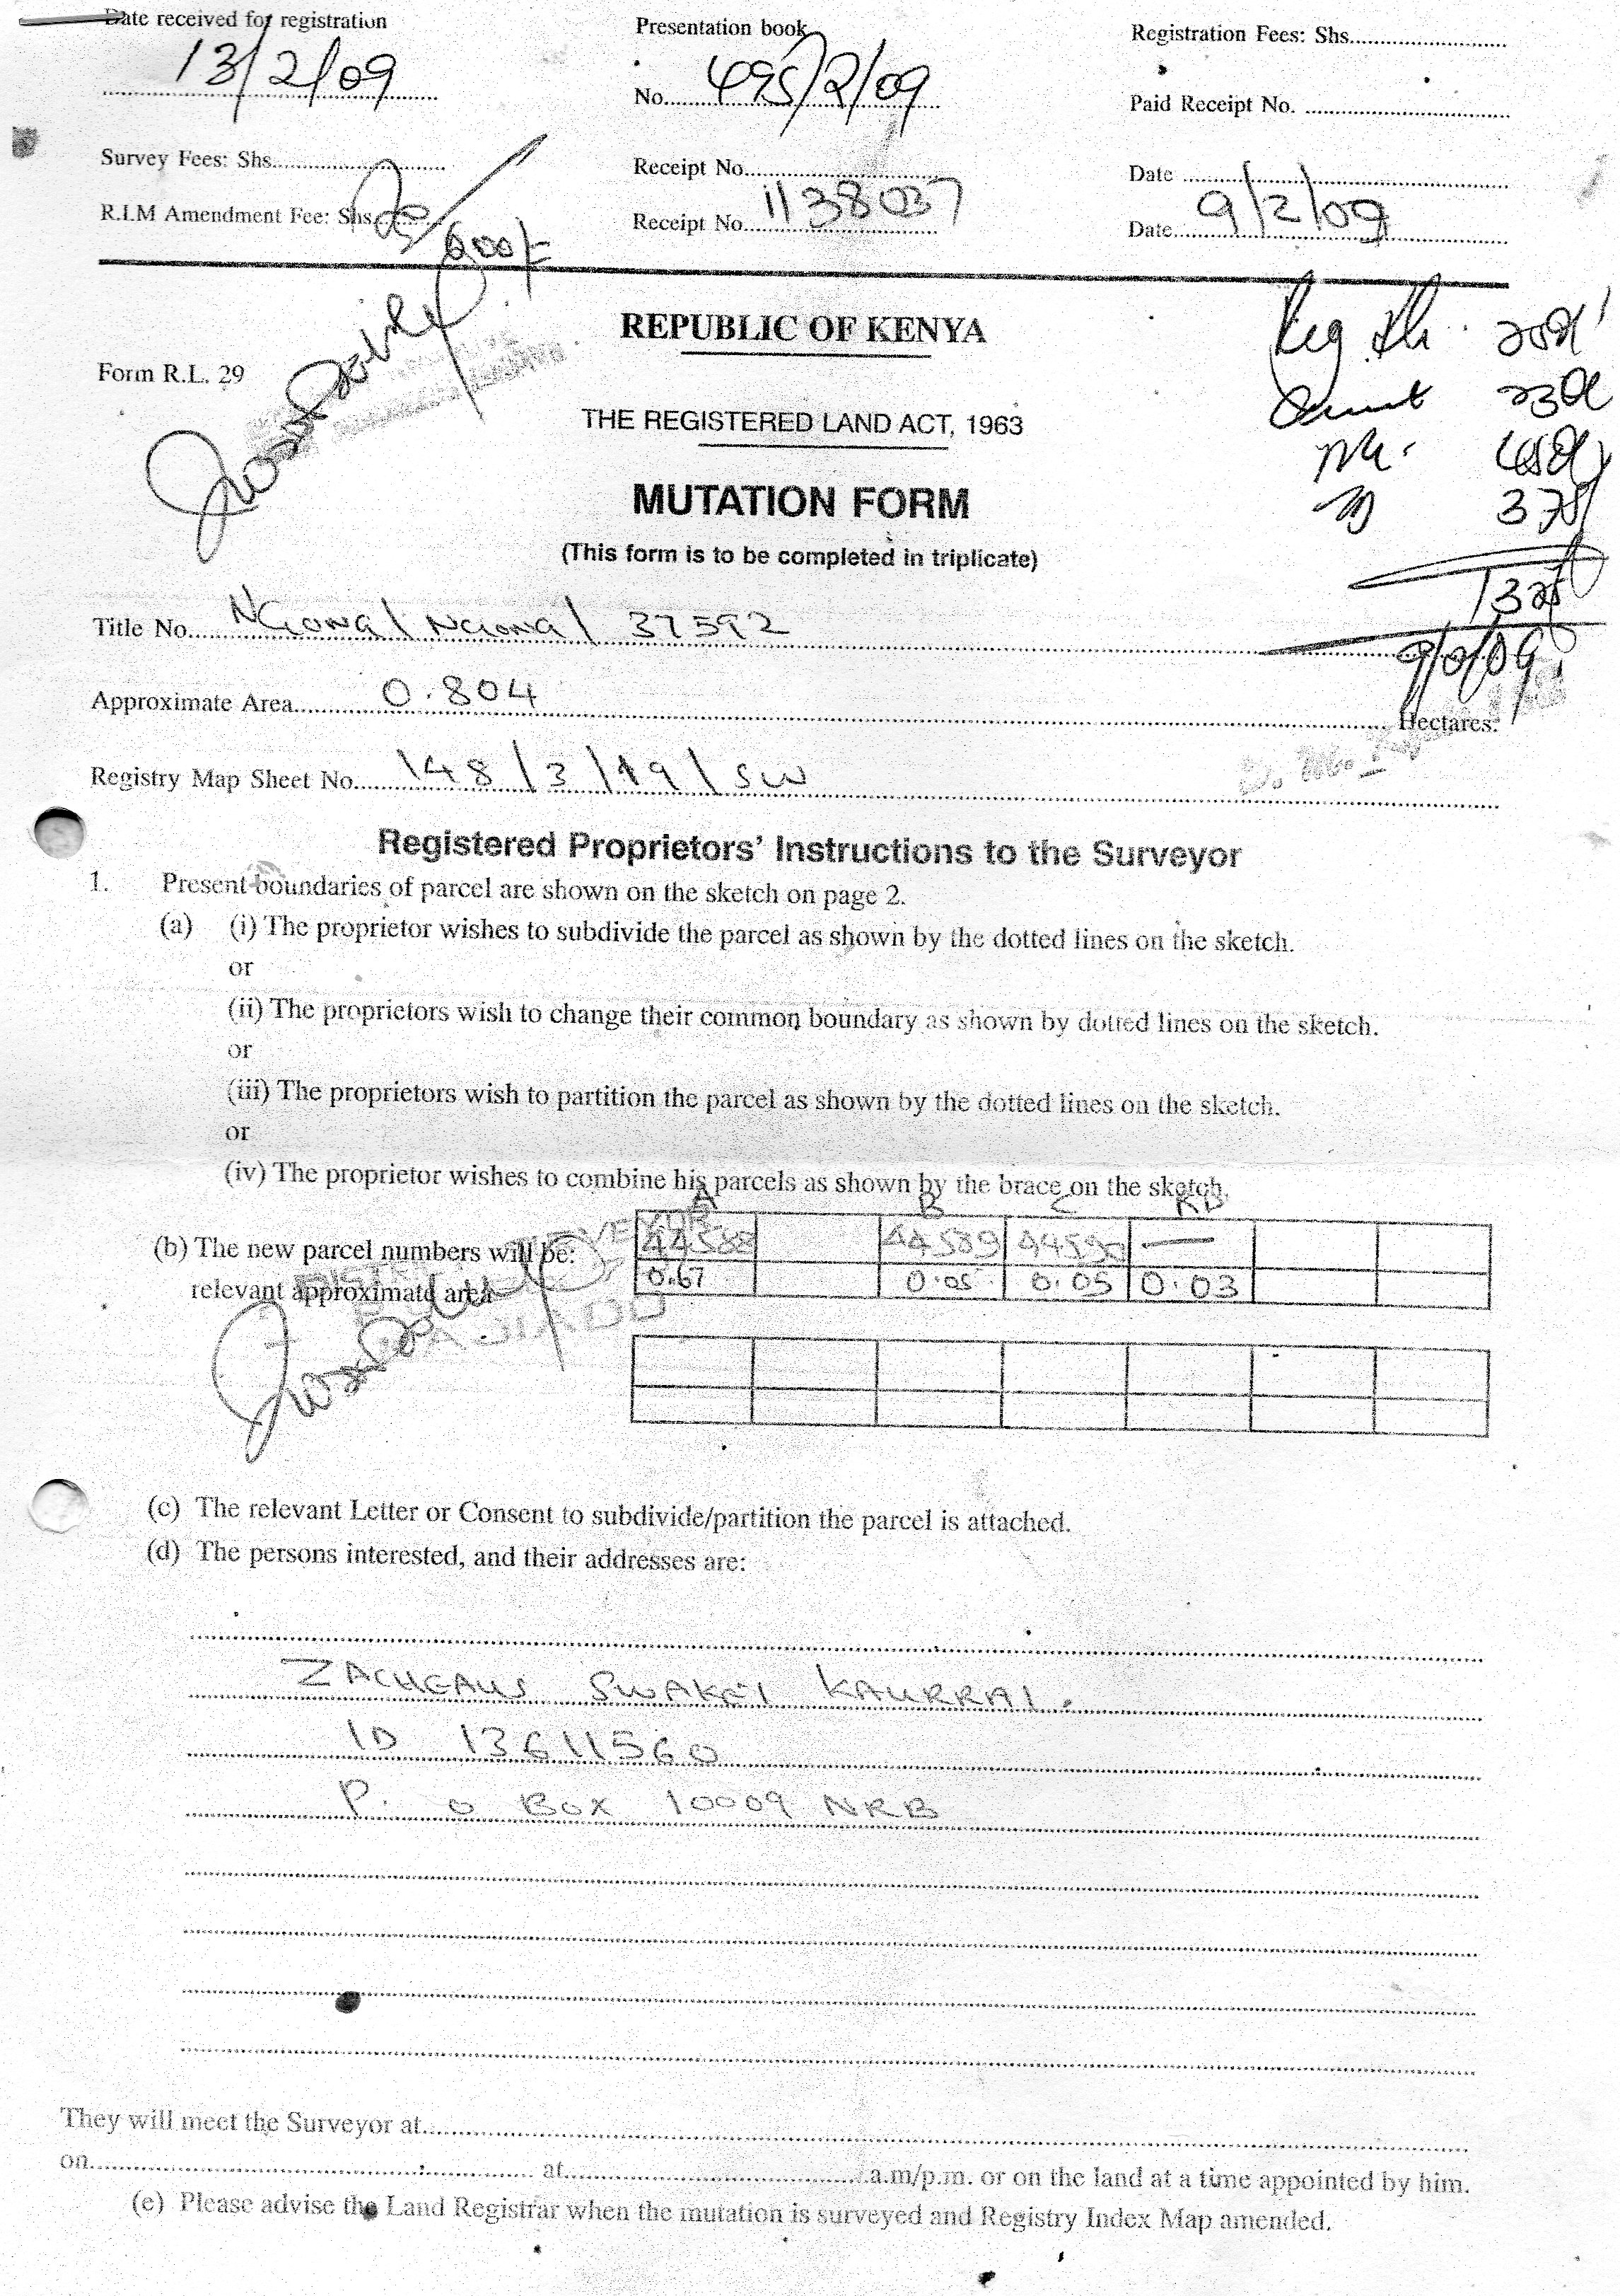 Date received for registration
13/2/09
Presentation book
No. 495/2/09
Registration Fees: Shs.
Paid Receipt No.
Survey Fees: Shs.
Receipt No.
Date
R.I.M Amendment Fee: Shs.
600/-
Receipt No. 1138037
Date 9/2/09
REPUBLIC OF KENYA
Form R.L. 29
THE REGISTERED LAND ACT, 1963
MUTATION FORM
(This form is to be completed in triplicate)
Title No. NGONG / NGONG / 37592
Approximate Area 0.804 Hectares.
Registry Map Sheet No. 148/3/19/SW
Registered Proprietors' Instructions to the Surveyor
1. Present boundaries of parcel are shown on the sketch on page 2.
(a) (i) The proprietor wishes to subdivide the parcel as shown by the dotted lines on the sketch.
or
(ii) The proprietors wish to change their common boundary as shown by dotted lines on the sketch.
or
(iii) The proprietors wish to partition the parcel as shown by the dotted lines on the sketch.
or
(iv) The proprietor wishes to combine his parcels as shown by the brace on the sketch.
A B C RD
(b) The new parcel numbers will be: 44588 44589 44590 —
relevant approximate area 0.67 0.05 0.05 0.03
(c) The relevant Letter or Consent to subdivide/partition the parcel is attached.
(d) The persons interested, and their addresses are:
ZACHEAUS SWAKEI KAURRAI.
ID 13611560
P. O BOX 10009 NRB
They will meet the Surveyor at
on at a.m/p.m. or on the land at a time appointed by him.
(e) Please advise the Land Registrar when the mutation is surveyed and Registry Index Map amended.